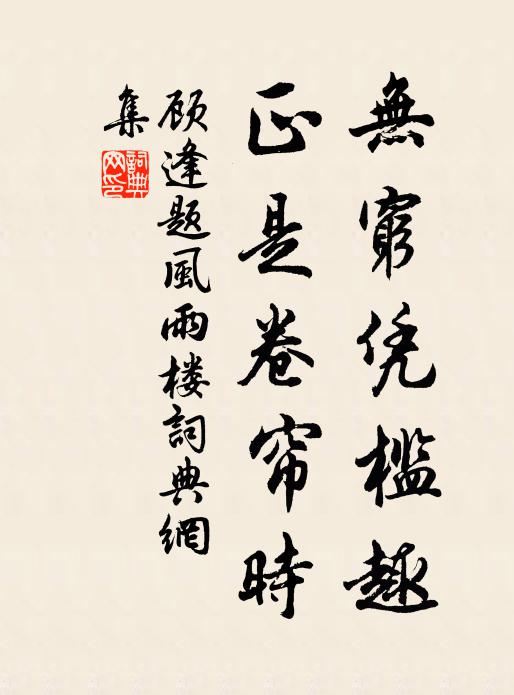 無窮凭檻趣
正是卷帘時
顾逢题風雨楼詞典網
集
詞典網印